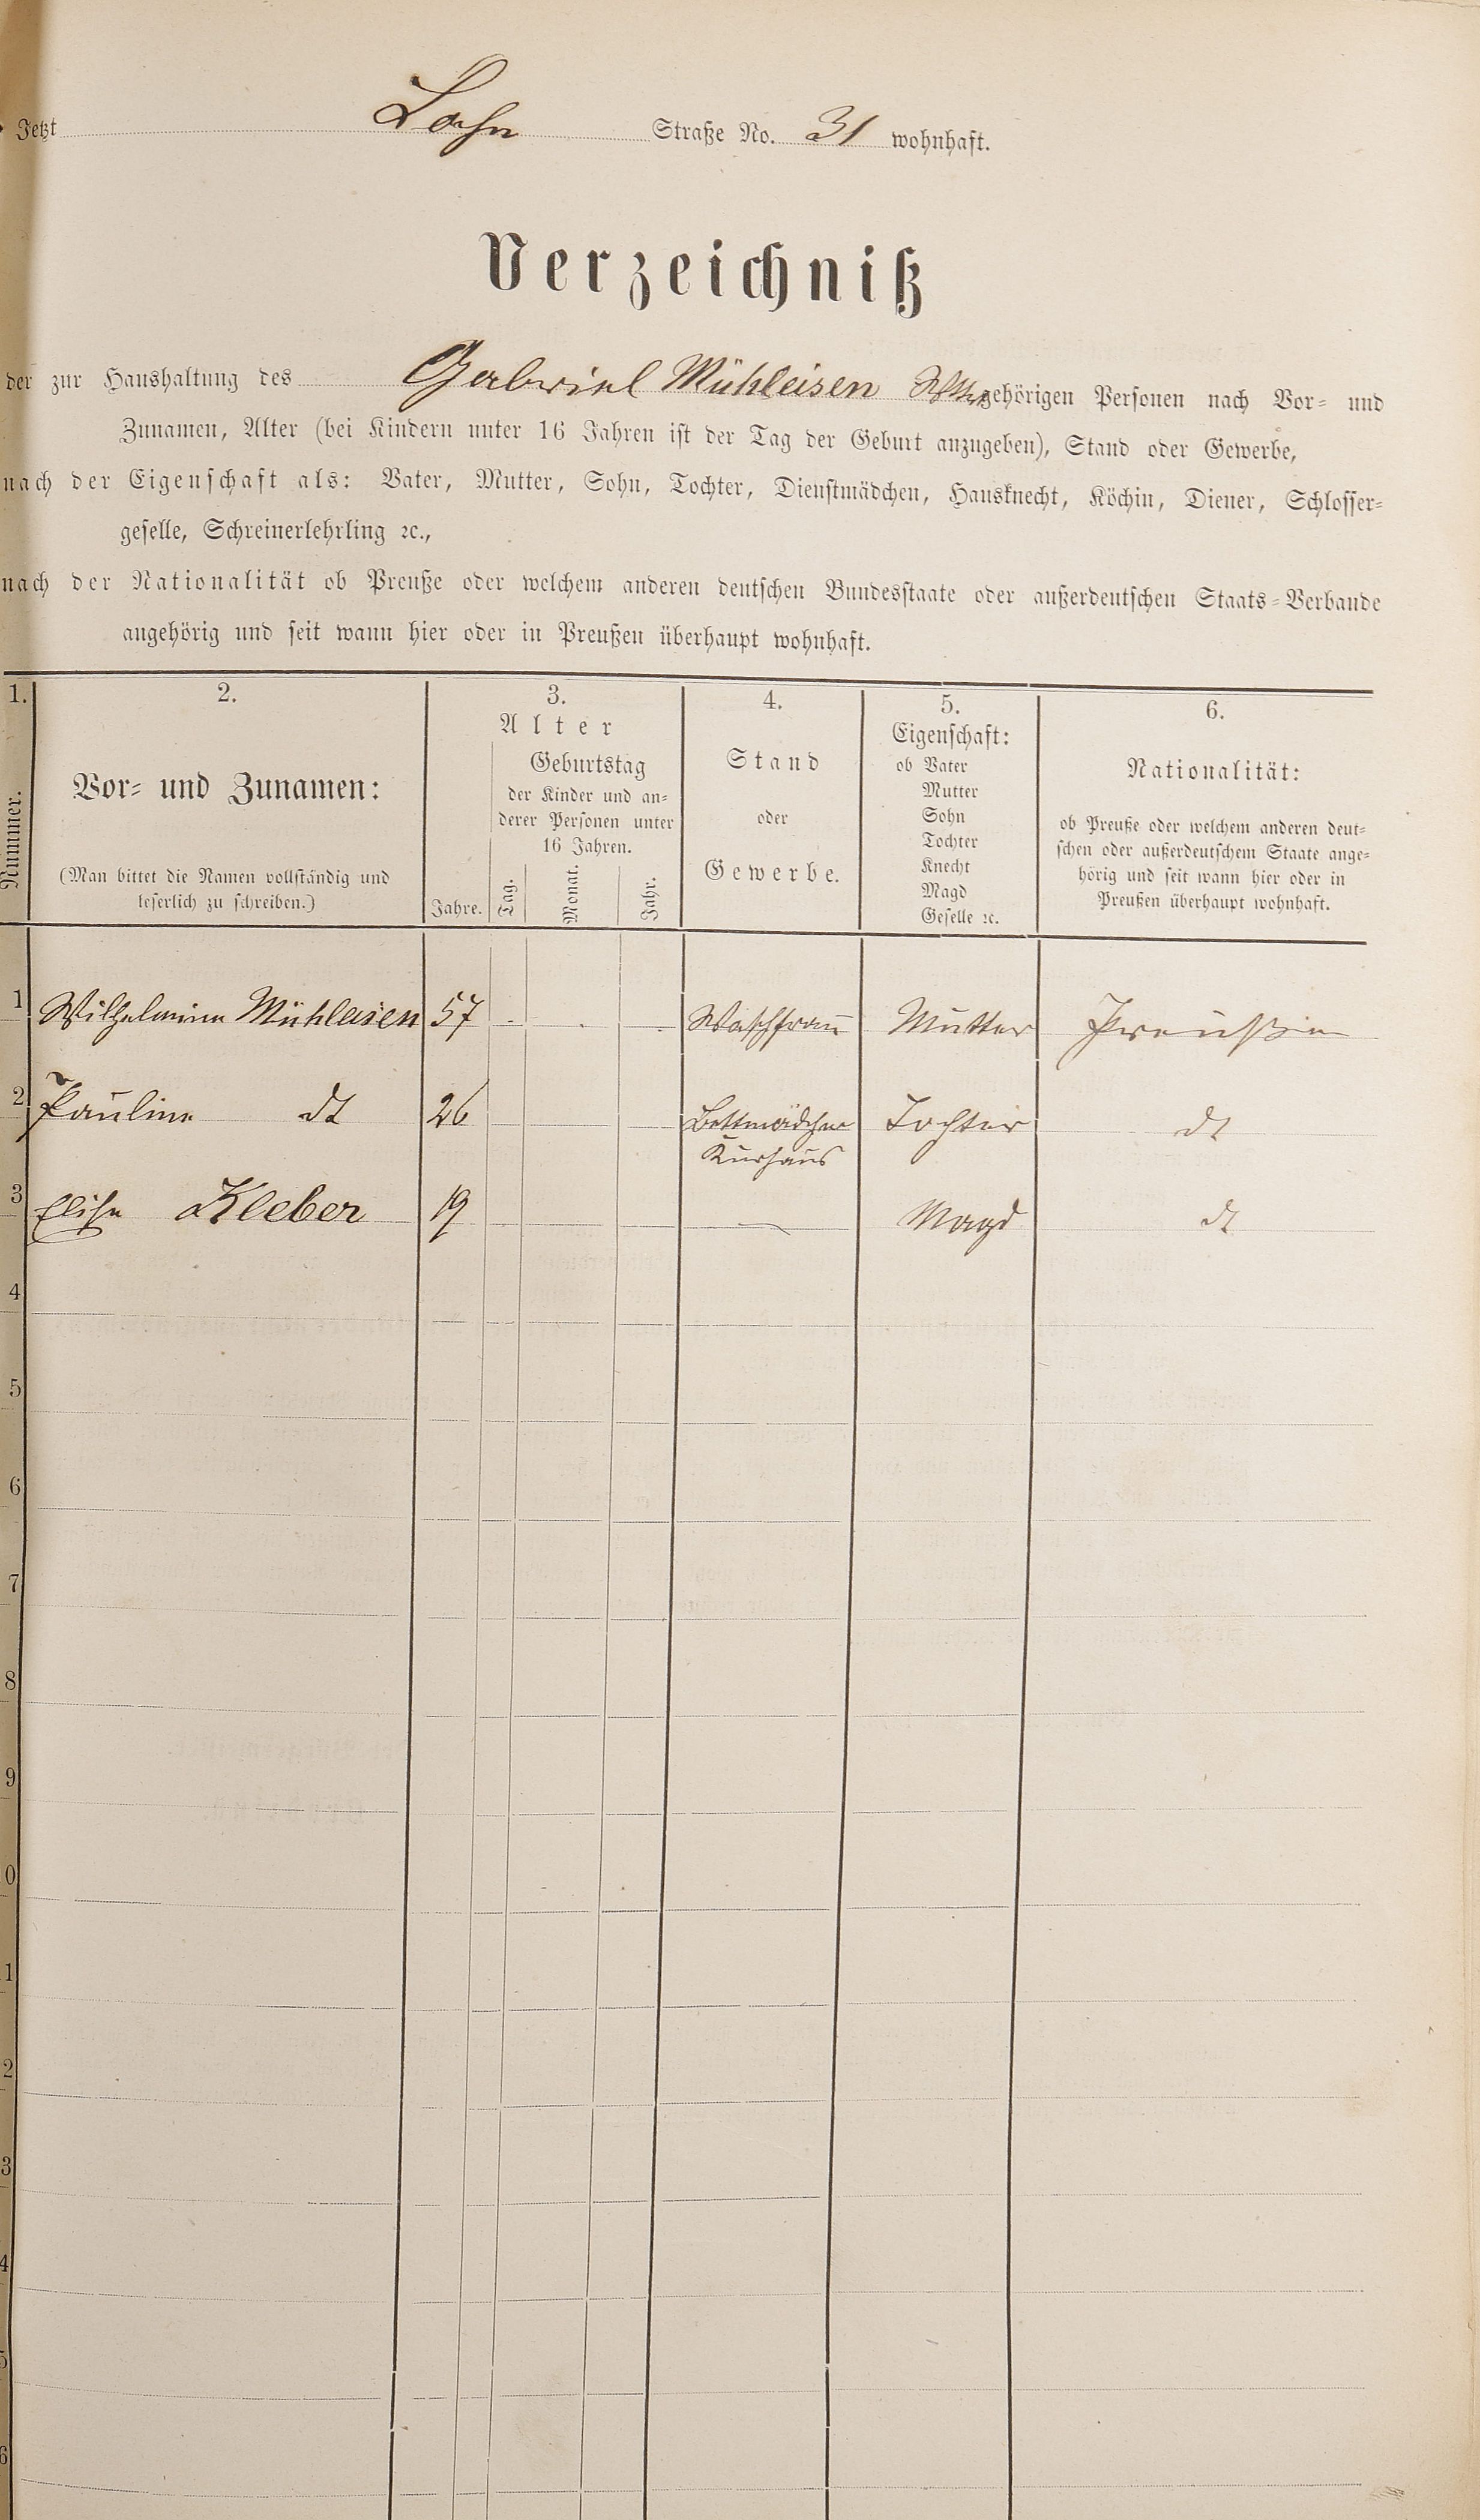 Jetzt Lahn Straße No. 31 wohnhaft.
Verzeichniß
der zur Haushaltung des Gabriel Mühleisen Wttw. gehörigen Personen nach Vor- und
Zunamen, Alter (bei Kindern unter 16 Jahren ist der Tag der Geburt anzugeben), Stand oder Gewerbe,
nach der Eigenschaft als: Vater, Mutter, Sohn, Tochter, Dienstmädchen, Hausknecht, Köchin, Diener, Schlosser-
geselle, Schreinerlehrling ꝛc.,
nach der Nationalität ob Preuße oder welchem anderen deutschen Bundesstaate oder außerdeutschen Staats-Verbande
angehörig und seit wann hier oder in Preußen überhaupt wohnhaft.
1. 2. 3. 4. 5. 6.
Nummer.
Vor- und Zunamen:
(Man bittet die Namen vollständig und
leserlich zu schreiben.)
Alter
Jahre.
Geburtstag
der Kinder und an-
derer Personen unter
16 Jahren.
Tag. Monat. Jahr.
Stand
oder
Gewerbe.
Eigenschaft:
ob Vater
Mutter
Sohn
Tochter
Knecht
Magd
Geselle ꝛc.
Nationalität:
ob Preuße oder welchem anderen deut-
schen oder außerdeutschem Staate ange-
hörig und seit wann hier oder in
Preußen überhaupt wohnhaft.
1 Wilhelmine Mühleisen 57 Waschfrau Mutter Preußin
2 Pauline dt 26 Bettmädchen Tochter dt
Kurhaus
3 Elise Kleber 19 — Magd dt
4
5
6
7
8
9
0
1
2
3
4
5
6